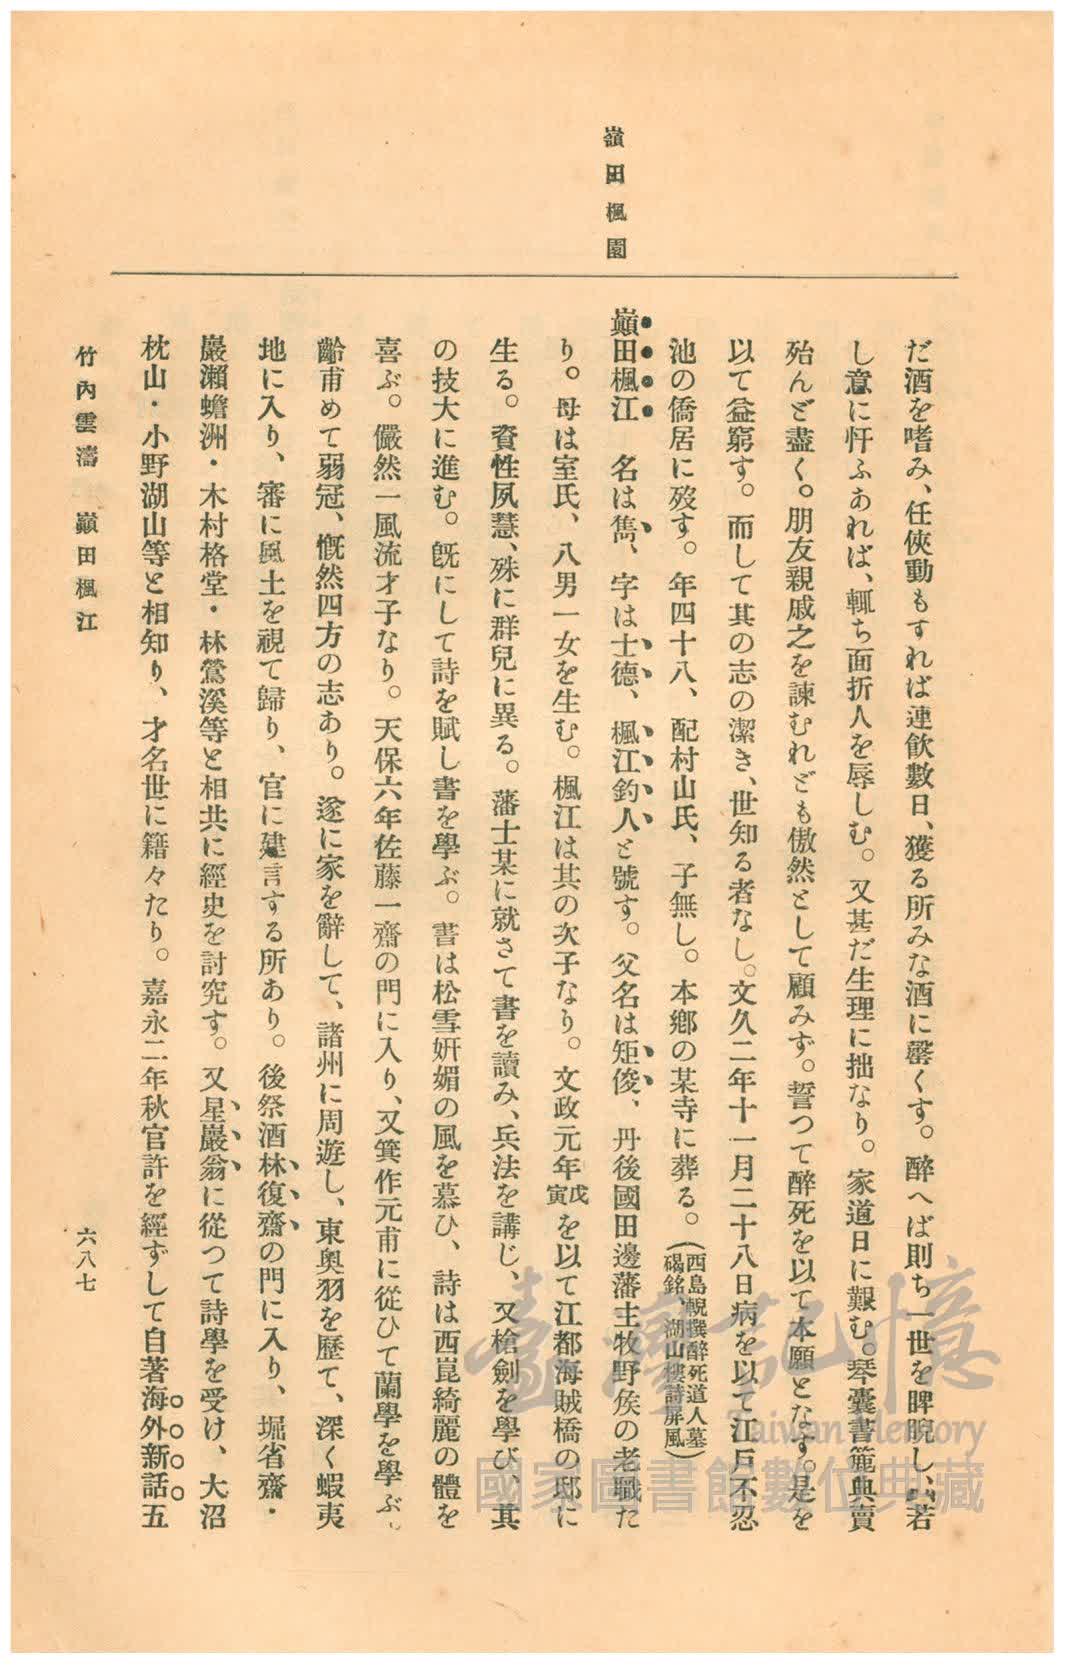 嶺田楓園
だ酒を嗜み、任俠動もすれば連飮數日、獲る所みな酒に罄くす。醉へば則ち一世を睥睨し、若
し意に忤ふあれば、輒ち面折人を辱しむ。又甚だ生理に拙なり。家道日に艱む。琴囊書簏典賣
殆んど盡く。朋友親戚之を諫むれども傲然として顧みず。誓つて醉死を以て本願となす。是を
以て益窮す。而して其の志の潔き、世知る者なし。文久二年十一月二十八日病を以て江戶不忍
池の僑居に歿す。年四十八、配村山氏、子無し。本鄉の某寺に葬る。(西島輗撰醉死道人墓碣銘、湖山樓詩屏風)
巓田楓江　名は雋、字は士德、楓江釣人と號す。父名は矩俊、丹後國田邊藩主牧野侯の老職た
り。母は室氏、八男一女を生む。楓江は其の次子なり。文政元年戊寅を以て江都海賊橋の邸に
生る。資性夙慧、殊に群兒に異る。藩士某に就さて書を讀み、兵法を講じ、又槍劍を學び、其
の技大に進む。旣にして詩を賦し書を學ぶ。書は松雪姸媚の風を慕ひ、詩は西崑綺麗の體を
喜ぶ。儼然一風流才子なり。天保六年佐藤一齋の門に入り、又箕作元甫に從ひて蘭學を學ぶ。
齡甫めて弱冠、慨然四方の志あり。遂に家を辭して、諸州に周遊し、東奧羽を歷て、深く蝦夷
地に入り、審に風土を視て歸り、官に建言する所あり。後祭酒林復齋の門に入り、堀省齋・
巖瀨蟾洲・木村格堂・林鶯溪等と相共に經史を討究す。又星巖翁に從つて詩學を受け、大沼
枕山・小野湖山等と相知り、才名世に籍々たり。嘉永二年秋官許を經ずして自著海外新話五
竹內雲濤　巓田楓江
六八七
臺灣記憶
Taiwan Memory
國家圖書館數位典藏